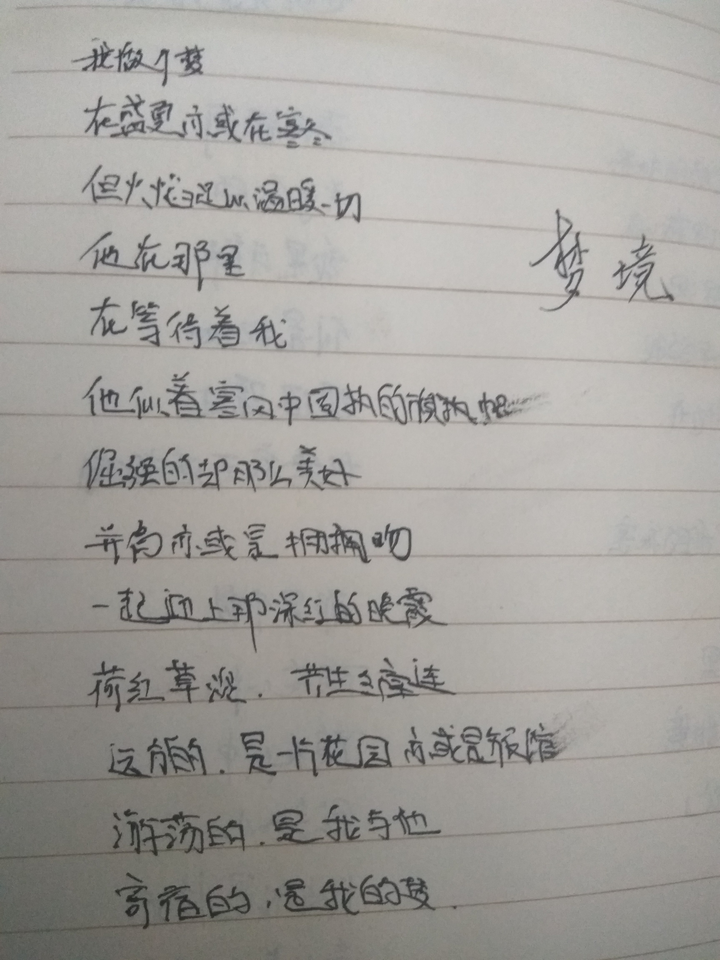 我做个梦
在盛夏亦或在寒冬
但火光足以温暖一切
他在那里
在等待着我
他似着寒风中固执的
倔强的却那么美好
并肩亦或是拥吻
一起迎上那深红的晚霞
荷红草
远方的，是一片花园亦或是旅馆
游荡的，是我与他
寄宿的，是我的梦.
梦境